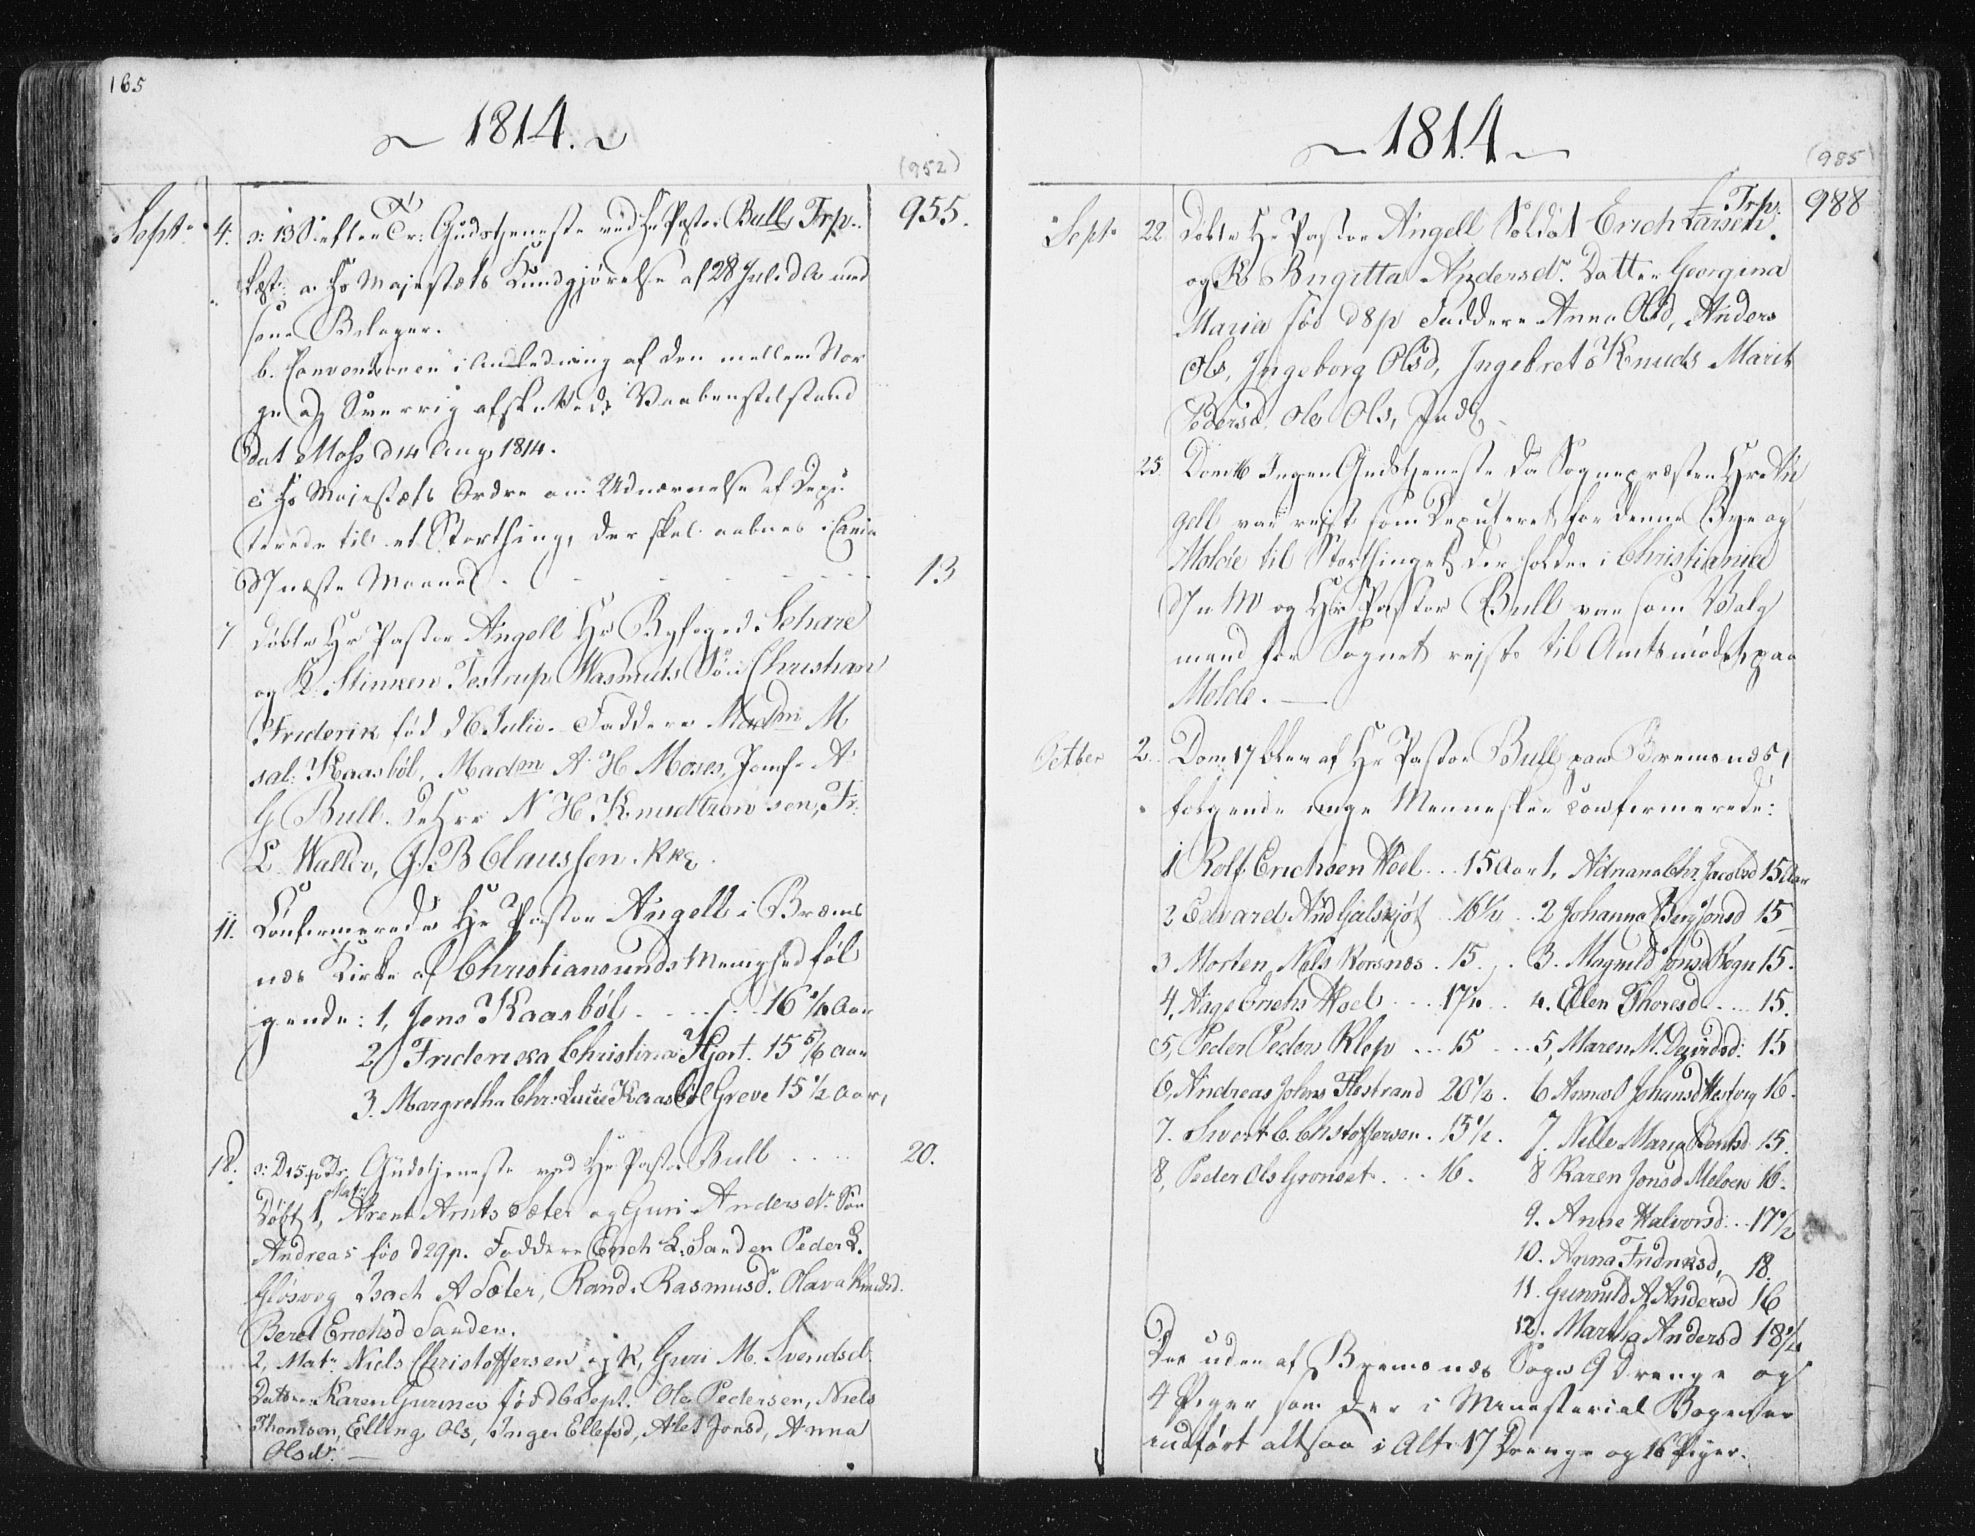 165
1814.
(952)
Sept. 4. o: 13 S: efter Tr: Gudstjeneste ved Hr Pastor Bull Trp. 955.
Læst: a. Hs Majestæts Kundgjørelse af 28 Juli d A med
sine Bilager.
b. Conventionen i Anledning af den mellem Nor
ge og Sverrig afsluttede Vaabenstilstand
Dat Moss d 14 Aug. 1814.
c Hs Majestæts Ordre om Udnævnelse af Depu
terede til et Storthing, der skal aabnes i
d 7 næste Maaned. 13
7 døbte Hr Pastor Angell Hr Byfoged Schare
og K. Stinken Testrup Wasmuths Søn Christian
Friderik fød d 6 Julii. Faddere Madm M
sal: Kaasbøl, Madm A H Moses, Jomf: A
G Bull. De Hrr N H Knudtzon sen, Fr.
L Waller, J. B Claussen.
11. Confirmerede Hr Pastor Angell i Brems
næs Kirke af Christiansunds Menighed føl
gende: 1, Jens Kaasbøl . . . . 16 ½ Aar
2, Fridericca Christina Hjort. 15 5/6 Aar
3. Margretha Chr: Lucie Kaasbøl Greve 15 ½ Aar,
18. o: D 15 p Tr. Gudstjeneste ved Hr Pastor Bull . . . . 20.
Døbt 1, Matr: Arent Arnts Sæter og Guri Andersdr Søn
Andreas fød d 29 p. Faddere Erich L. Sanden Peder L.
Isach A Sæter, Randi Rasmusdr. Olava Knudsd.
Beret Erichsd Sanden.
2, Matr: Niels Christoffersen og K, Guri M. Svendsd.
Datter Karen Gurinea fød d 6 Sept. Ole Pedersen, Niels
Thomsen, Elling Ols, Inger Ellefsd, Alet Jonsd, Anna
Olsdr: —
1814
(985)
Sept. 22 Døbte Hr Pastor Angell Soldat Erich Larsen Trp. 988
og K Brigitta Andersdr. Datter Georgina
Maria fød d 8 p Faddere Anna Olsd, Anders
Ols, Ingeborg Olsd, Ingebret Knuds Marit
Pedersd. Ole Ols,
25. Ingen Gudstjeneste da Sognepræsten Hr An
gell var reist som Deputeret for denne Bye og
Molde til Storthinget der holdes i Christiania
d 7 n M og Hr Pastor Bull var som Valg
mand for Sognet reist til Amtsmødet paa
Molde. —
Octber 2. Dom. 17 blev af Hr Pastor Bull paa Bremsnæs,
følgende unge Mennesker confirmerede:
1 Rolf Erichsen Hoel . . . 15 Aar 1, Adriana Chr. Jacobsd 15 Aar
2 Edvard And 16 ½ . . 2 Johanna Berg Jonsd 15
3 Morten Nils Korsnæs . 15 . . 3. Magnild Jonsd 15.
4, Aage Erichs Hoel . . . 17 ½ . . 4. Ellen Thoresd . . . 15.
5, Peder Peders Klep . . . 15 . . . 5, Maren M. Davidsd: 15
6, Andreas Johns Flostrand 20 ½ . 6 Johansd 16.
7. Sivert C. Chstoffersen . 15 ½ . 7. Nille Maria Bentsd 15.
8, Peder Ols Grønset . . . 16. 8 Karen Jonsd Meloen 16.
9. Anne Halvorsd: . . 17 ½
10. Anna Fridriksd, 18.
11. Gunnild A Andersd 16
12. Martha Andersd 18 ½
Der uden af Bremsnæs Sogn 9 Drenge og
4 Piger som der i Ministerial Bogen er
indført altsaa i Alt 17 Drenge og 16 Piger.